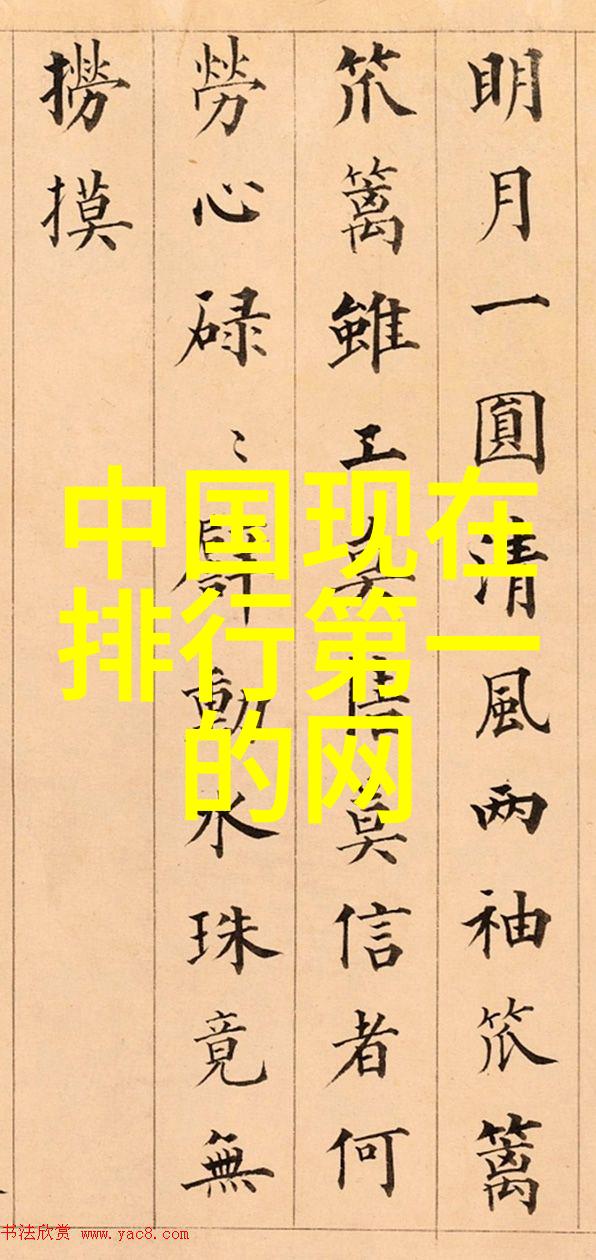 明月一圓清風两袖笊篱
笊篱雖工莫信者何
勞心碌〻動水珠竟無
撈摸
中国现在
排行第一
的网
书法欣赏 www.yac8.com